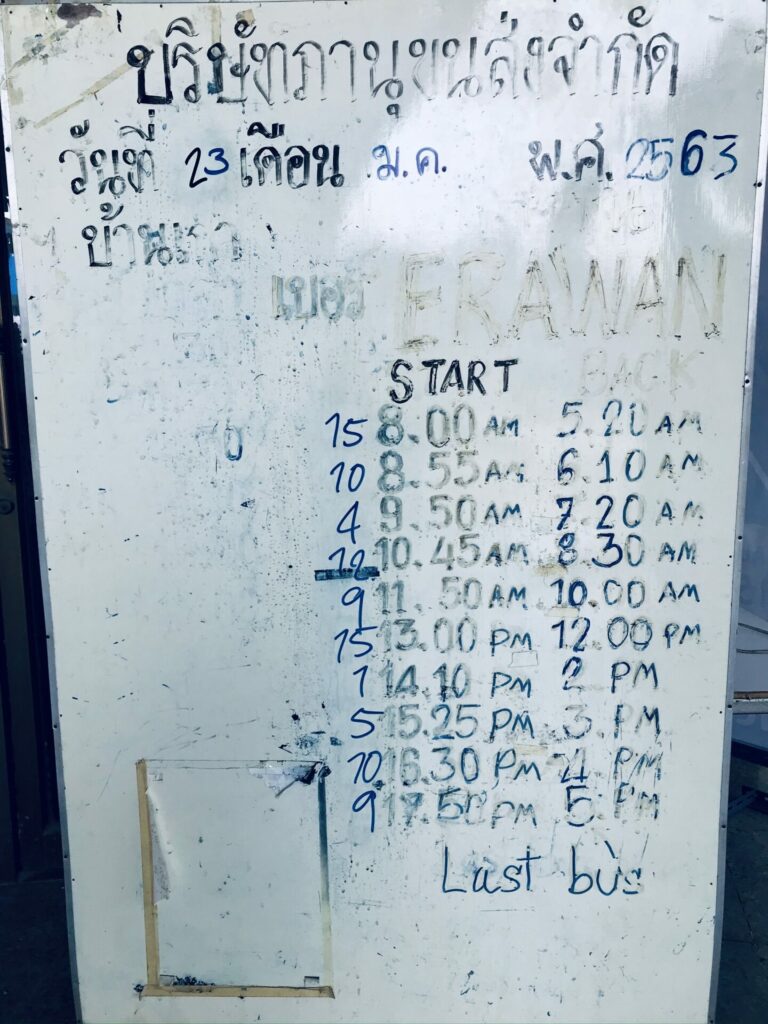 บริษัทภานุขนส่งจำกัด
วันที่ 23 เดือน ม.ค. พ.ศ. 2563
เบอร์ ERAWAN
START BACK
15 8.00 AM 5.20 AM
10 8.55 AM 6.10 AM
4 9.50 AM 7.20 AM
12 10.45 AM 8.30 AM
9 11.50 AM 10.00 AM
15 13.00 PM 12.00 PM
1 14.10 PM 2 PM
5 15.25 PM 3. PM
10 16.30 PM 4 PM
9 17.50 PM 5. PM
Last bus